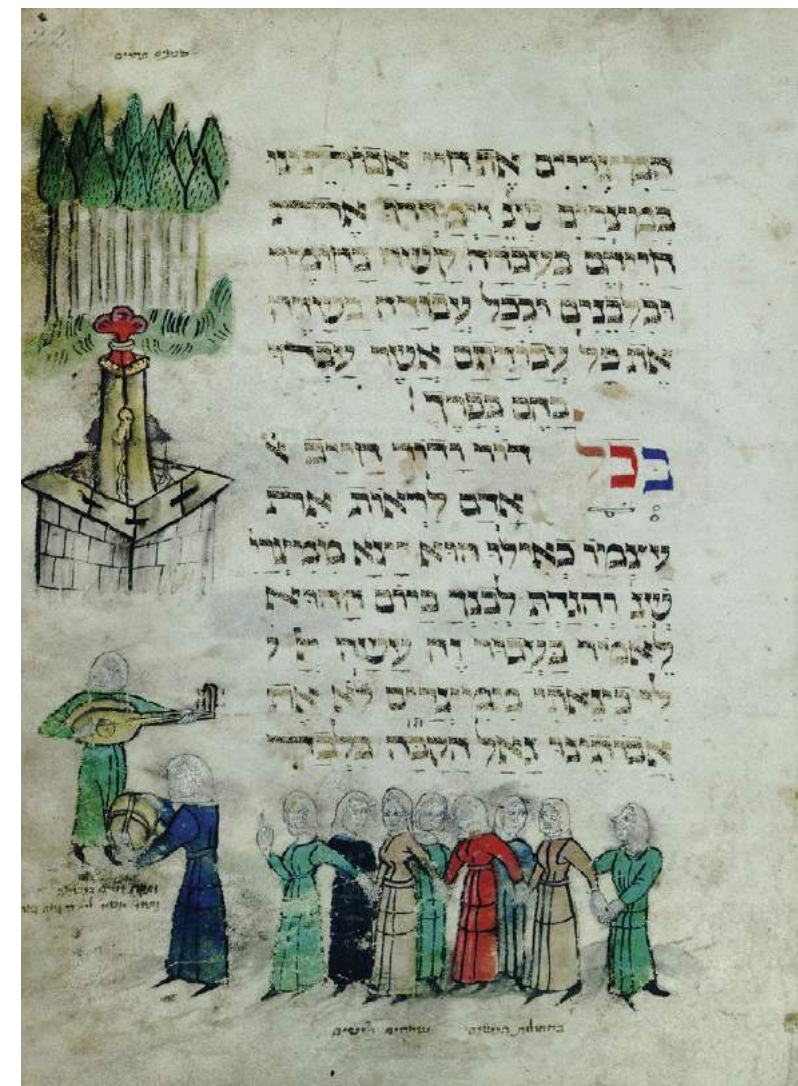 המצריים את חיי אבותינו
במצרים שנ וימררו את
חייהם בעבדה קשה בחומר
ובלבנים ובכל עבודה בשדה
את כל עבודתם אשר עבדו
בהם בפרך:
בכל דור ודור חייב א
אדם לראות את
עצמו כאילו הוא יצא ממצרי
שנ והגדת לבנך ביום ההוא
לאמור בעבור זה עשה יי ל
לי בצאתי ממצרים לא את
אבותינו גאל הקבה בלבד